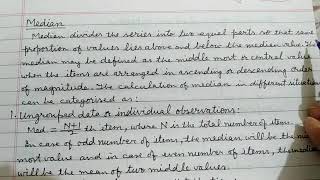 Median
Median divides the series into two equal parts so that same
proportion of values lies above and below the median value. The
median may be defined as the middle most or central value
when the items are arranged in ascending or descending order
of magnitude. The calculation of median in different situation
can be categorised as:
1. Ungrouped data or individual observations:
Med = N+1/2 th item, where N is the total number of item.
In case of odd number of items, the median will be the mid
most value and in case of even number of items, the med
will be the mean of two middle values.